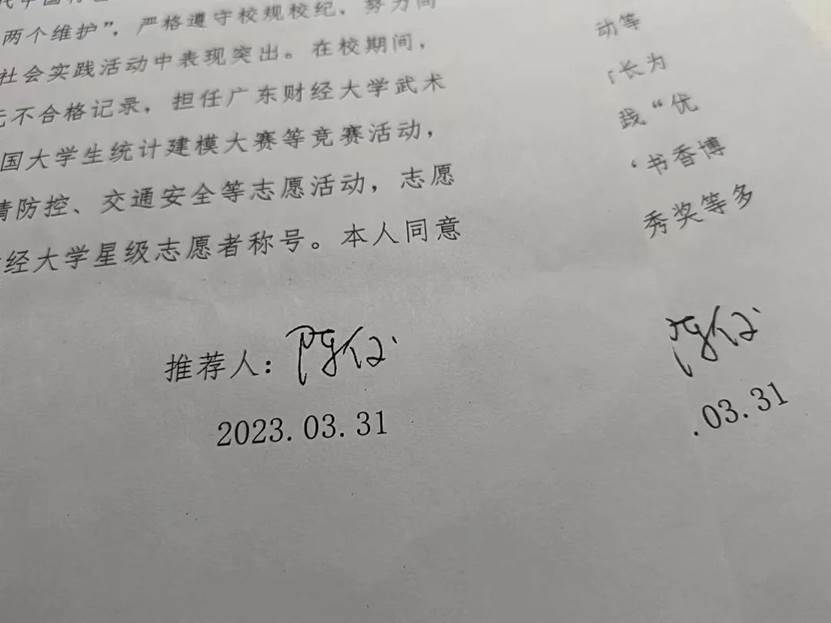 两个维护”，严格遵守校规校纪、努力向
社会实践活动中表现突出。在校期间，
无不合格记录，担任广东财经大学武术
国大学生统计建模大赛等竞赛活动，
情防控、交通安全等志愿活动，志愿
经大学星级志愿者称号。本人同意
推荐人：
2023.03.31
动等
长为
践“优
书香博
秀奖等多
.03.31